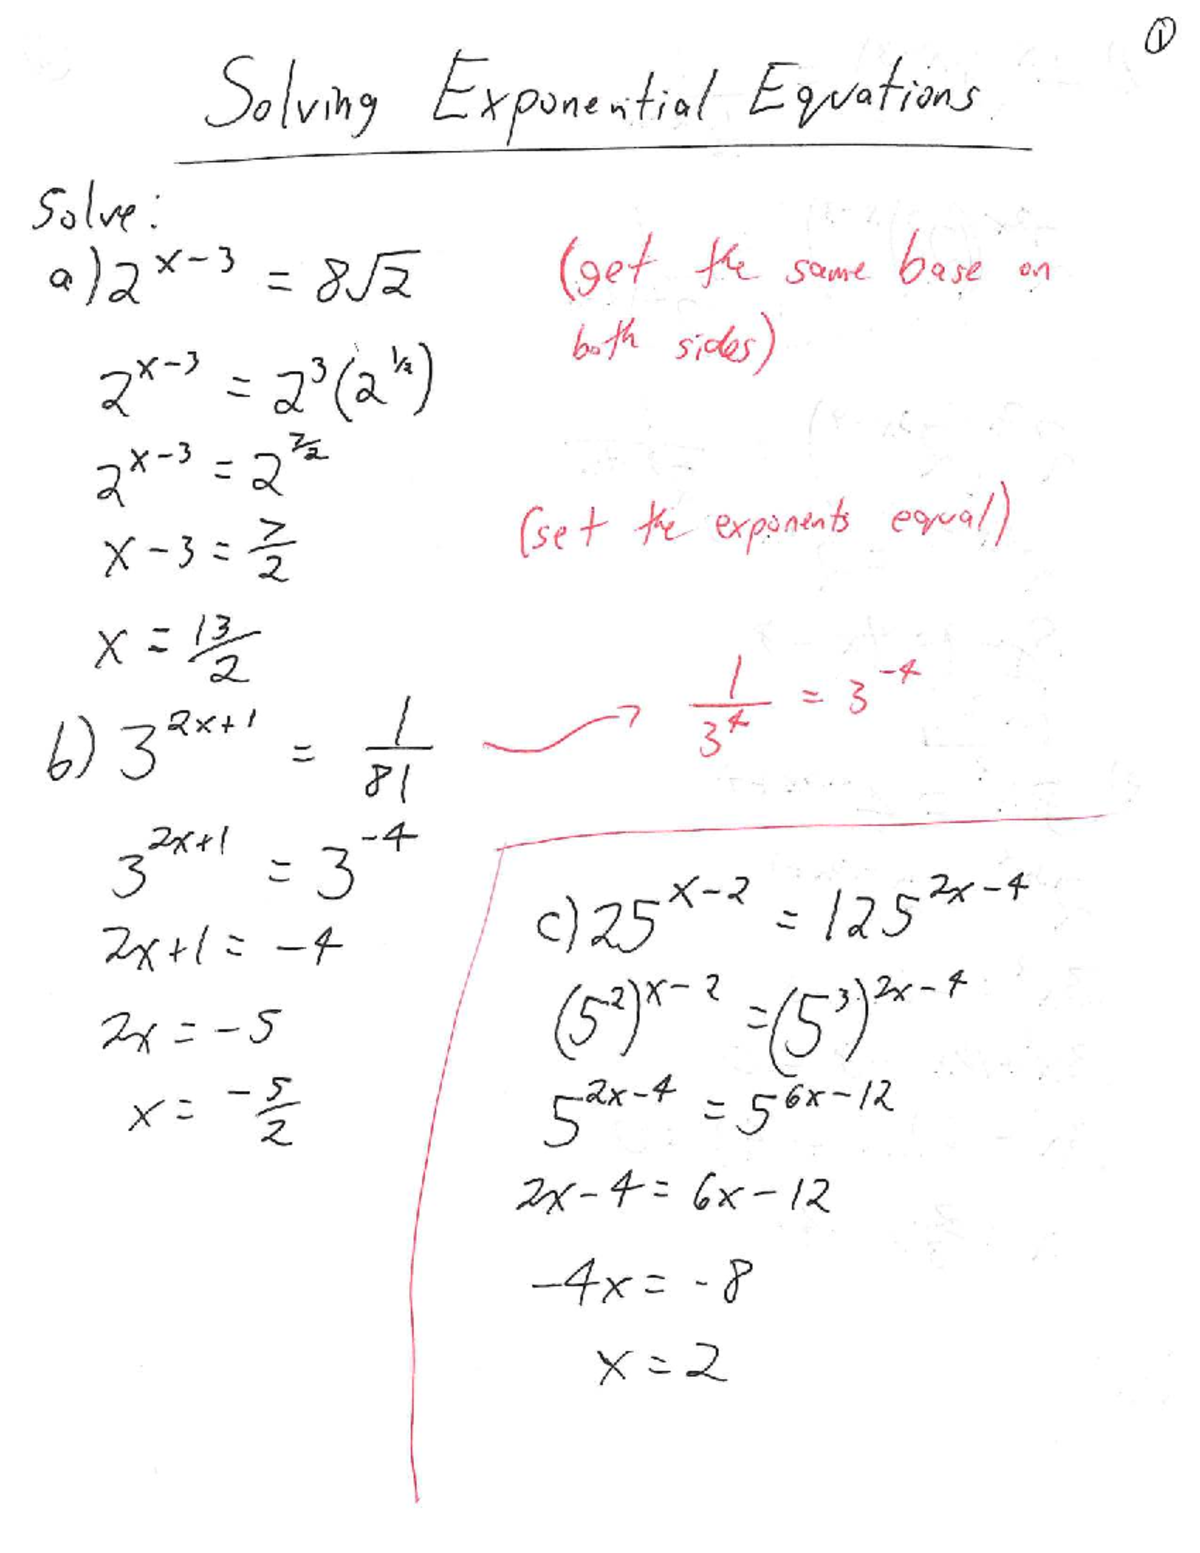 ①
Solving Exponential Equations
Solve:
a) 2^(x-3) = 8√2
(get the same base on
both sides)
2^(x-3) = 2^3(2^(1/2))
2^(x-3) = 2^(7/2)
x-3 = 7/2
(set the exponents equal)
x = 13/2
b) 3^(2x+1) = 1/81
1/3^4 = 3^(-4)
3^(2x+1) = 3^(-4)
2x+1 = -4
2x = -5
x = -5/2
c) 25^(x-2) = 125^(2x-4)
(5^2)^(x-2) = (5^3)^(2x-4)
5^(2x-4) = 5^(6x-12)
2x-4 = 6x-12
-4x = -8
x = 2